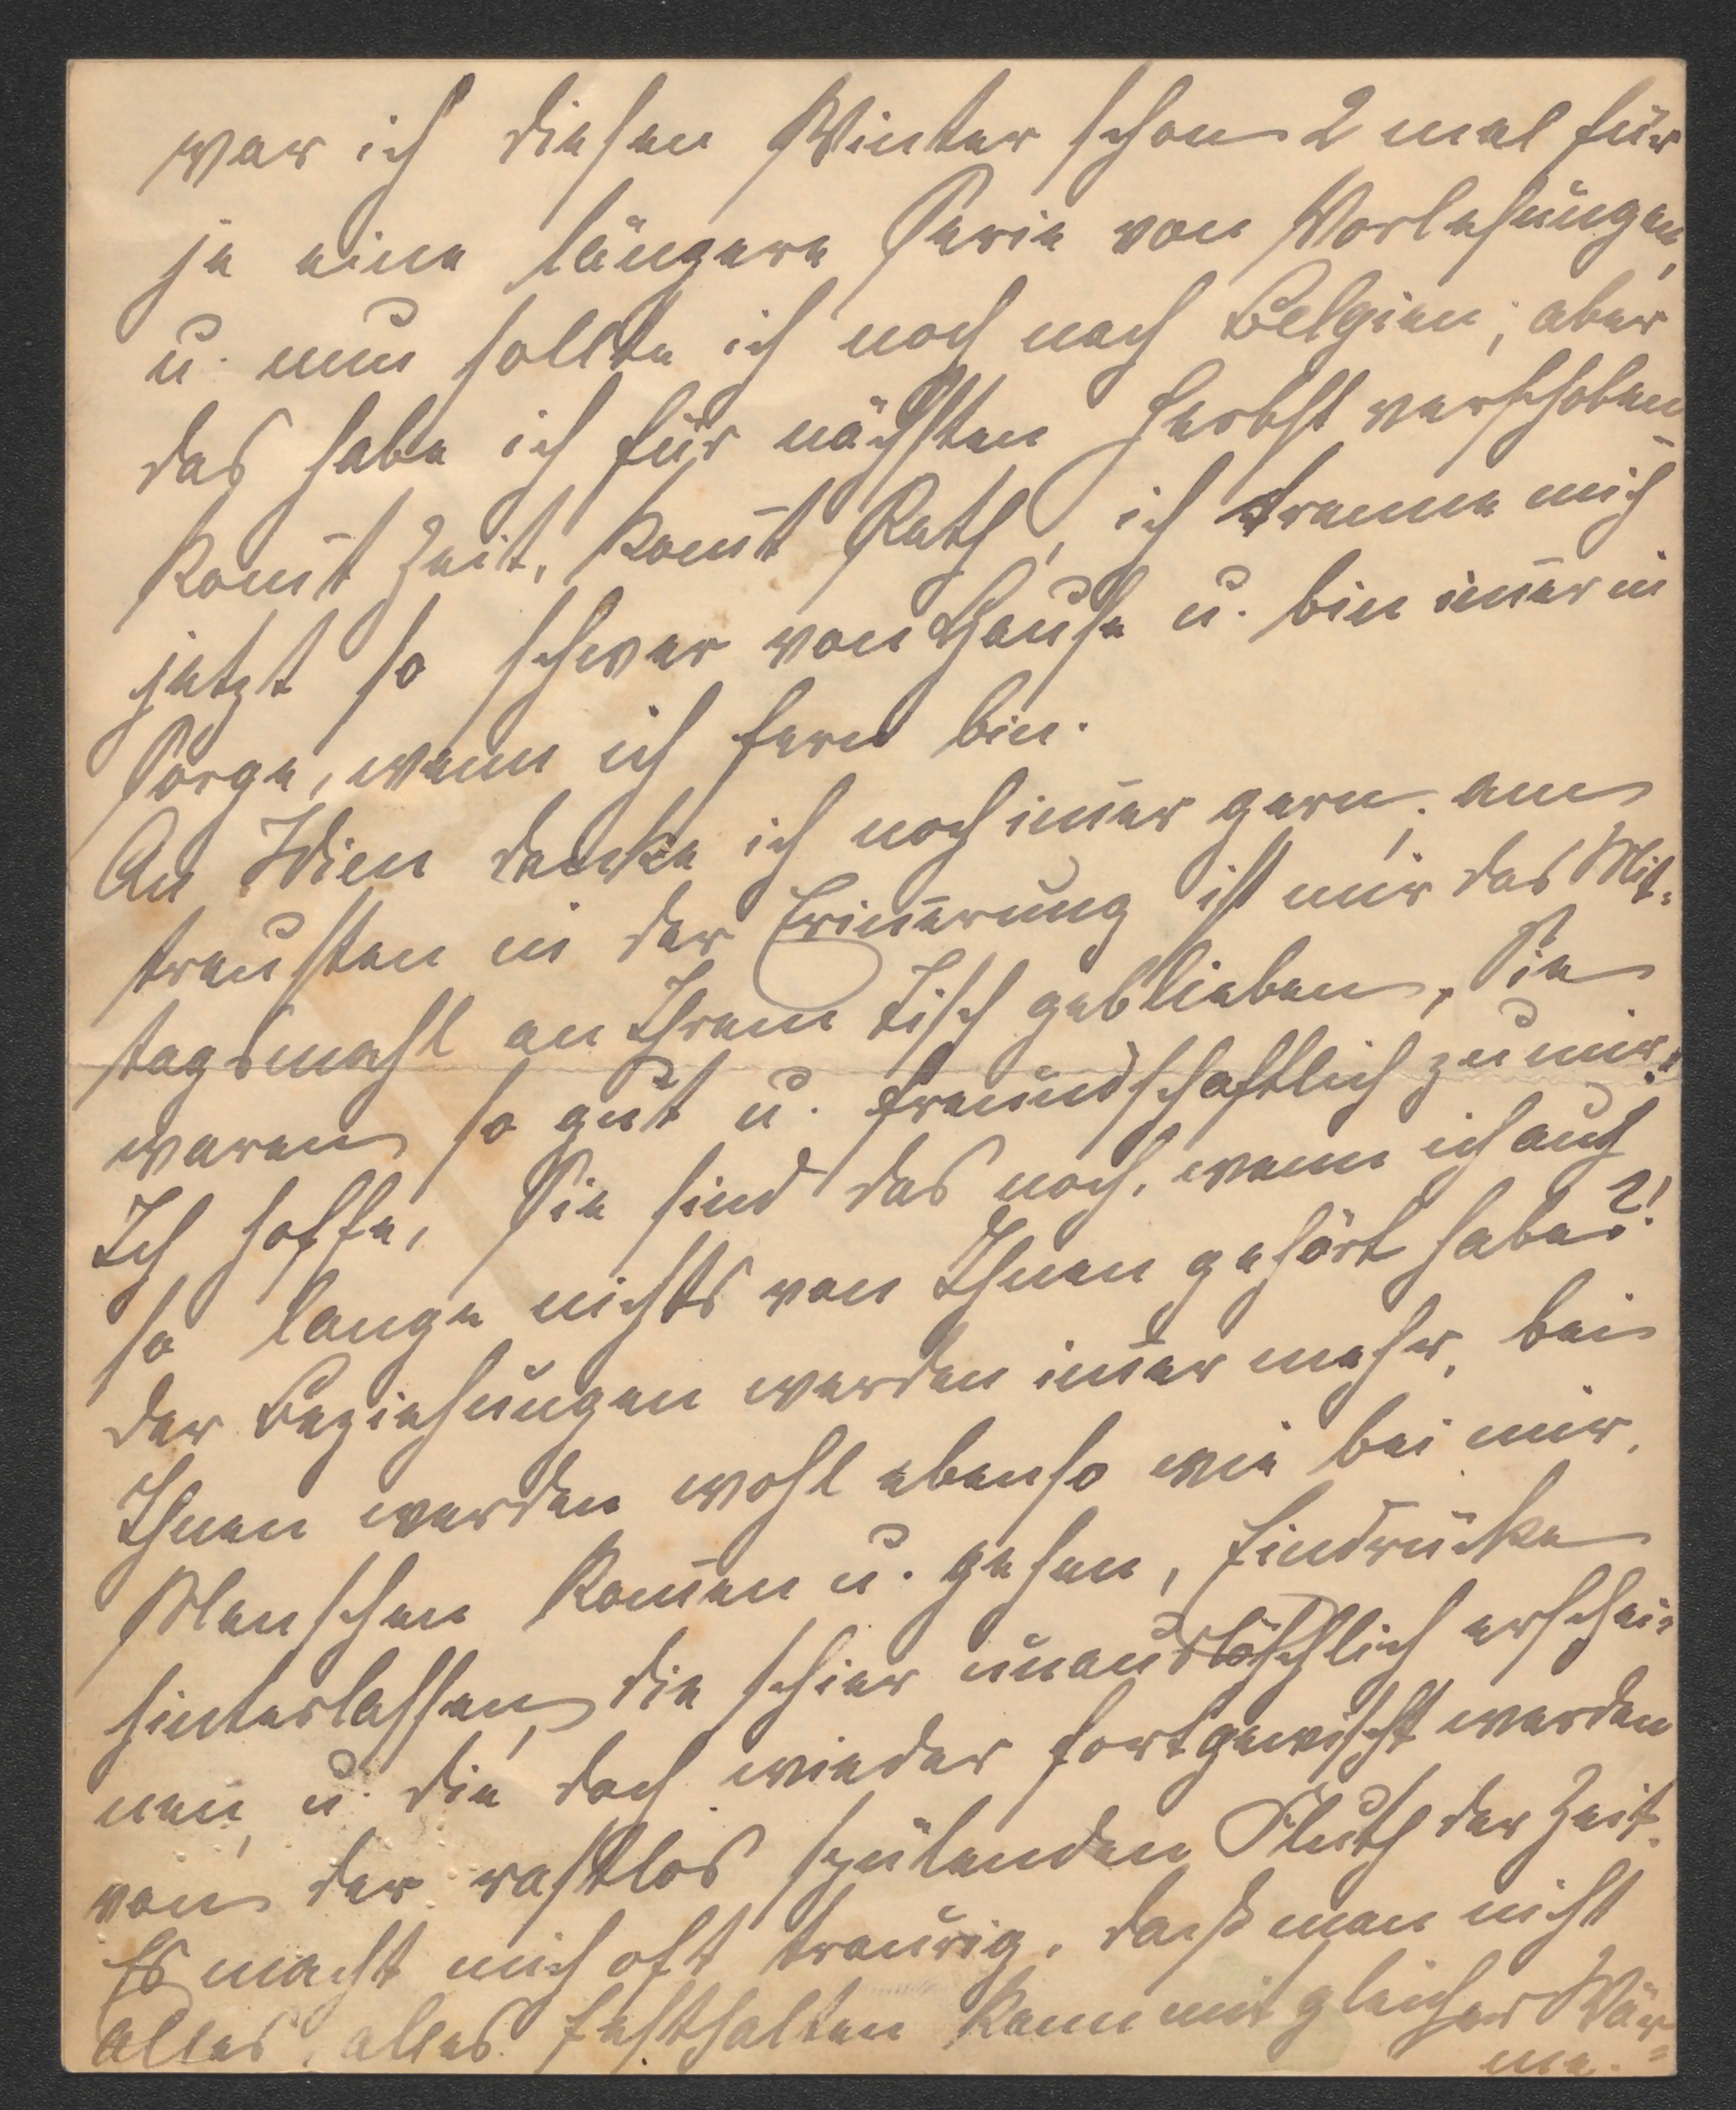 war ich diesen Winter schon 2 mal für
je eine längere Serie von Vorlesungen,
u. nun sollte ich noch nach Belgien; aber
das habe ich für nächsten Herbst verschoben –
kom̄t Zeit, kom̄t Rath, ich trenne mich
jetzt so schwer von Hause u. bin im̄er in
Sorge, wenn ich fern bin.
An Wien denke ich noch im̄er gern; am
treusten in der Erin̄erung ist mir das Mit-
tagsmahl an Ihrem Tisch geblieben, Sie
waren so gut u. freundschaftlich zu mir!
Ich hoffe, Sie sind das noch, wenn ich auch
so lange nichts von Ihnen gehört habe?!
Der Beziehungen werden im̄er mehr, bei
Ihnen werden wohl ebenso wie bei mir,
Menschen kom̄en u. gehen, Eindrücke
hinterlassen, die schier unauslöschlich erschei-
nen, u. die doch wieder fortgewischt werden
von der rastlos spülenden Fluth der Zeit.
Es macht mich oft traurig, daß man nicht
alles, alles festhalten kann mit gleicher Wär-
me.